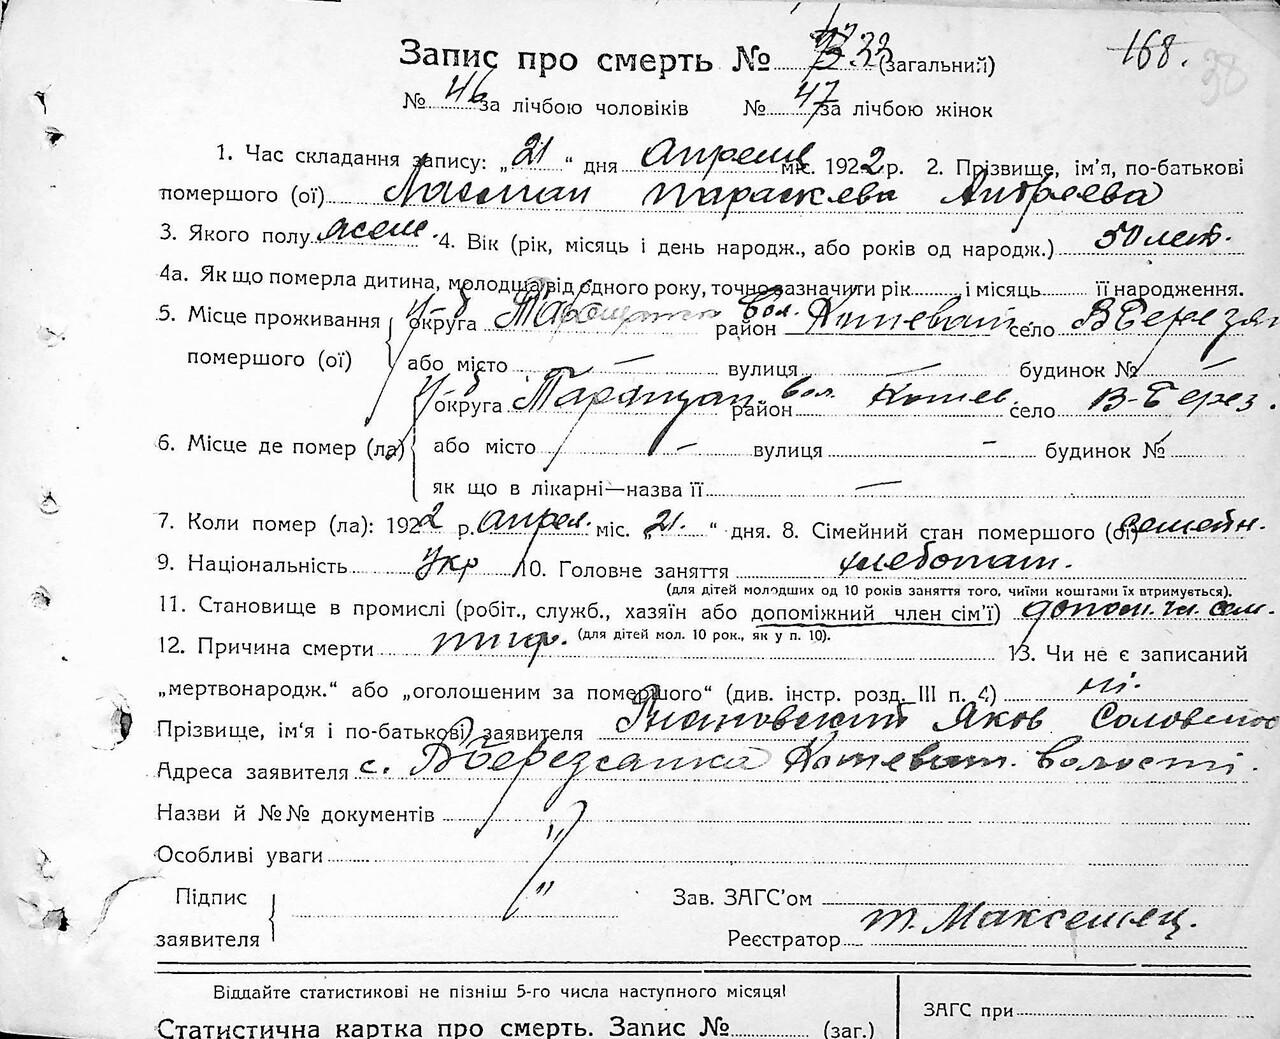 168. 38
Запис про смерть № 33 (загальний)
№ 46 за лічбою чоловіків № 47 за лічбою жінок
1. Час складання запису: „21“ дня апреля міс. 1922 р. 2. Прізвище, ім'я, по-батькові
помершого (ої) Параскева Андреева
3. Якого полу женс. 4. Вік (рік, місяць і день народж., або років од народж.) 50 лет.
4а. Як що померла дитина, молодша від одного року, точно зазначити рік і місяць її народження.
5. Місце проживання округа район вол. село
помершого (ої) або місто — вулиця — будинок № —
округа район вол. Кошев. село В-Берез.
6. Місце де помер (ла) або місто — вулиця — будинок №
як що в лікарні—назва її —
7. Коли помер (ла): 1922 р. апрел. міс. „21.“ дня. 8. Сімейний стан помершого (ої) семейн.
9. Національність Укр 10. Головне заняття хлебопаш.
(для дітей молодших од 10 років заняття того, чиїми коштами їх втримується).
11. Становище в промислі (робіт., служб., хазяїн або допоміжний член сім'ї) допом. чл. сем.
12. Причина смерти тиф. (для дітей мол. 10 рок., як у п. 10). 13. Чи не є записаний
„мертвонародж.“ або „оголошеним за помершого“ (див. інстр. розд. III п. 4) ні.
Прізвище, ім'я і по-батькові заявителя Яков
Адреса заявителя с. Волості.
Назви й №№ документів "
Особливі уваги
Підпис " Зав. ЗАГС'ом
заявителя Реєстратор
Віддайте статистикові не пізніш 5-го числа наступного місяця!
Статистична картка про смерть. Запис № (заг.) ЗАГС при